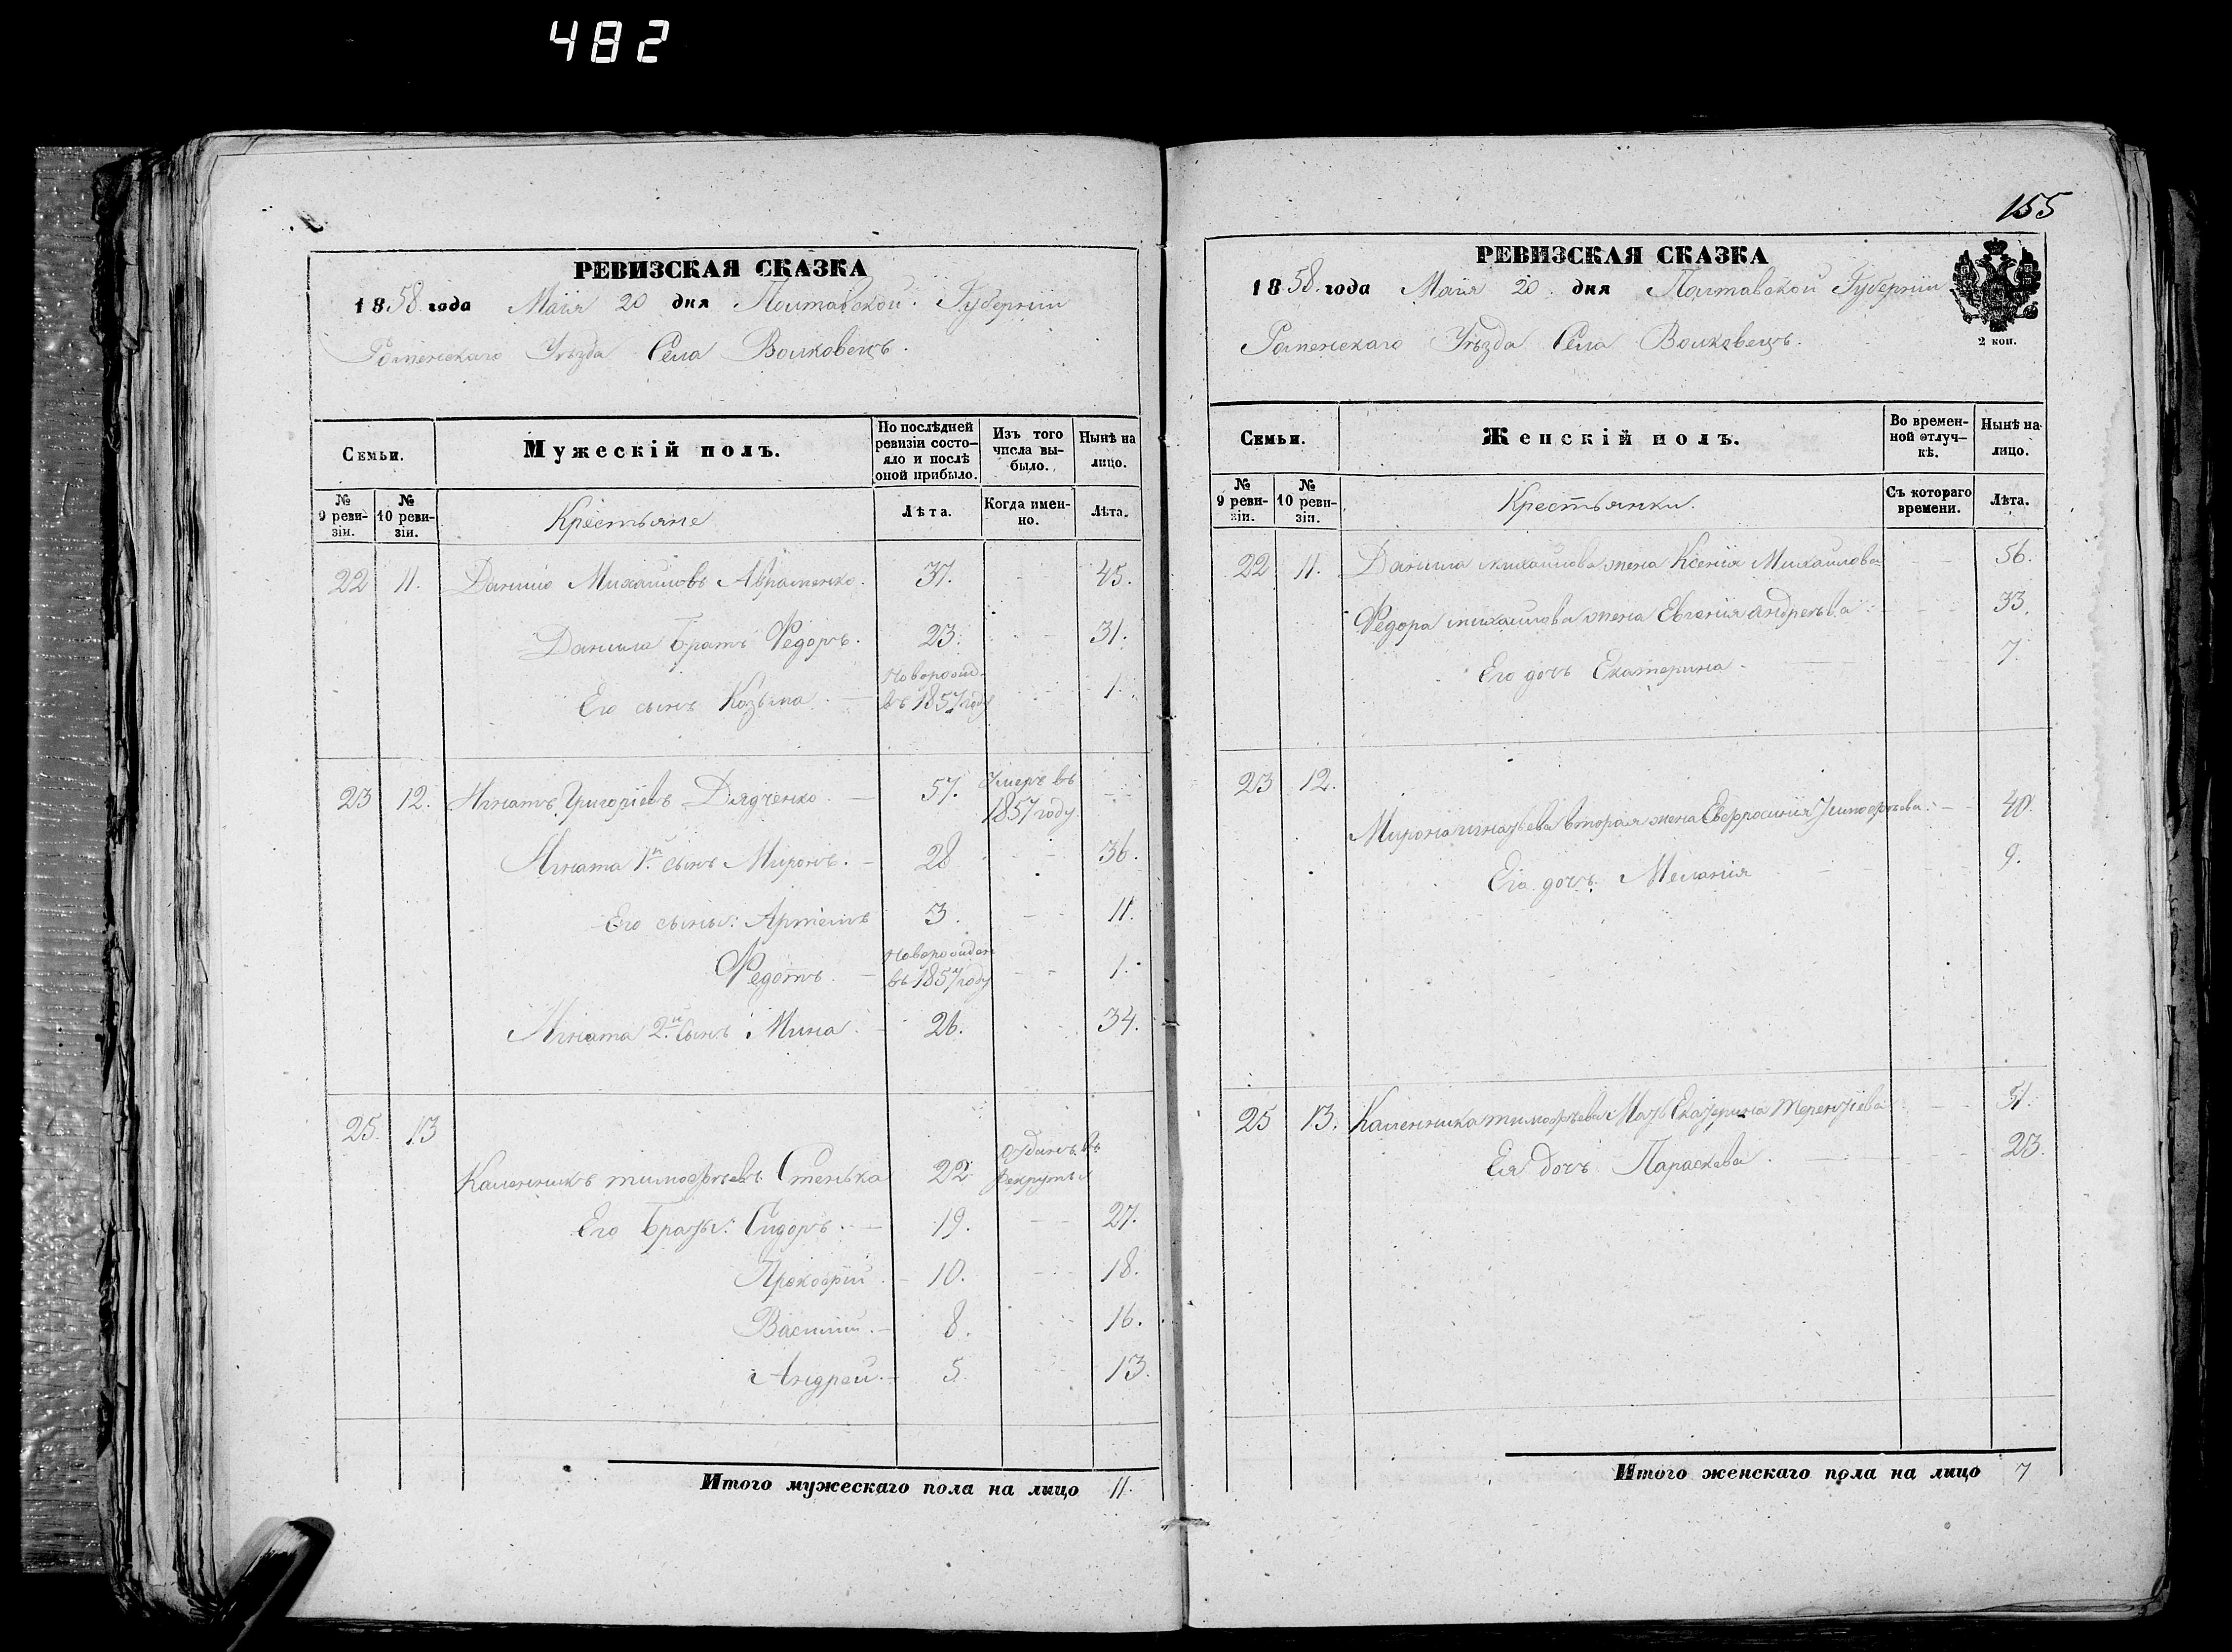 482
РЕВИЗСКАЯ СКАЗКА
1858 года Маiя 20 дня Полтавской Губернiи
Роменскаго Уѣзда Села Волковецъ.
Семьи.
Мужескiй полъ.
По послѣдней ревизiи состо-яло и послѣ оной прибыло.
Изъ того числа вы-было.
Нынѣ на лицо.
№ 9 реви-зiи.
№ 10 реви-зiи.
Крестьяне
Лѣта.
Когда имен-но.
Лѣта.
22 11. Данило Михайловъ Авраменко. 37. 45.
Данила братъ Федоръ. 23. 31.
Его сынъ Козьма. новорожд. въ 1857 году 1.
23 12. Игнатъ Григорiевъ Дядченко. 57. умеръ въ 1857 году
Игната 1й сынъ Миронъ. 28 36.
Его сыны: Артемъ 3. 11.
Федотъ. новорожден въ 1857 году 1.
Игната 2й сынъ Мина. 26. 34.
25. 13
Каленникъ тимофѣевъ Стенька 22 отданъ въ рекруты
Его братья: Сидоръ. 19. 27.
Прокофiй 10. 18.
Василiй. 8. 16.
Андрей. 5. 13.
Итого мужескаго пола на лицо 11.
155
РЕВИЗСКАЯ СКАЗКА
1858. года Маiя 20 дня Полтавской Губернiи
Роменскаго Уѣзда Села Волковецъ.
2 коп.
Семьи.
Женскiй полъ.
Во времен-ной отлуч-кѣ.
Нынѣ на лицо.
№ 9 реви-зiи.
№ 10 реви-зiи.
Крестьянки.
Съ котораго времени.
Лѣта.
22 11. Данила михайлова жена Ксенiя Михайлова 56.
Федора михайлова жена Евгенiя андреѣва 33.
Его дочъ Екатерина 7.
23 12.
Мирона игнатьева вторая жена Евфросинiя Тимофѣева 40.
Его дочъ Меланiя 9.
25 13. Каленника тимофѣева Мать Екатерина терентiева 51.
Ея дочъ Параскева. 23.
Итого женскаго пола на лицо 7